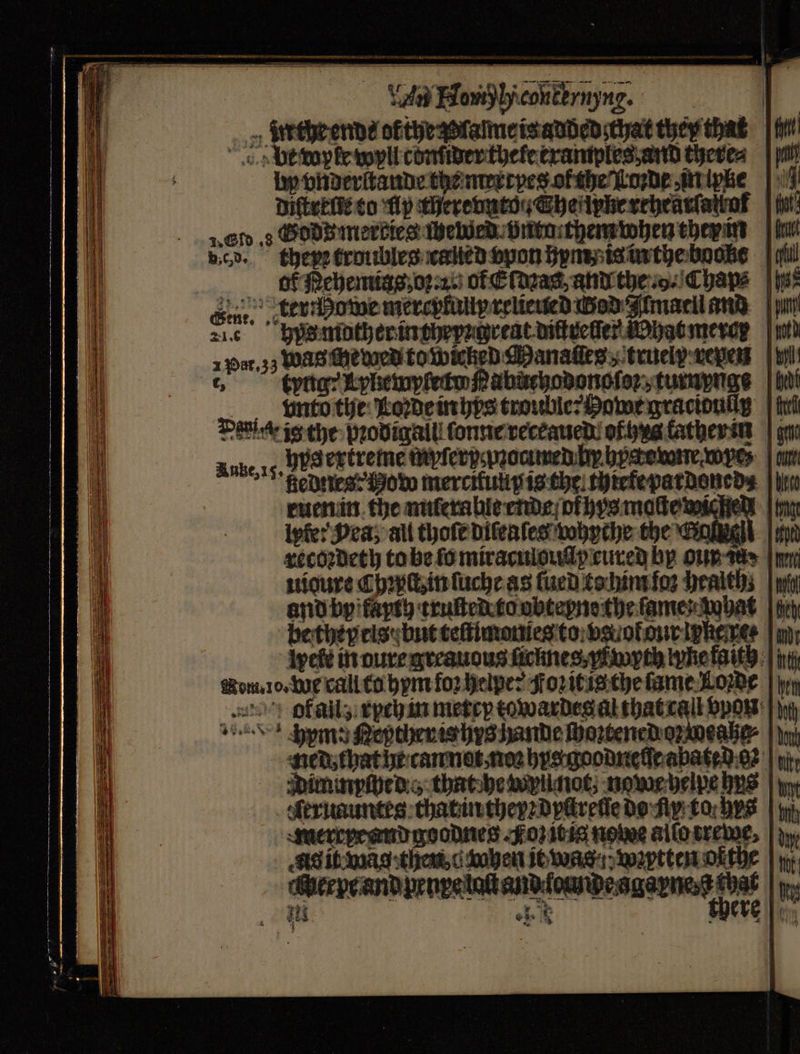 An Homyly concernyng.
in the ende of the Psalme is added, that they that
be wyse wyll consider these examples, and therea
by vnderstande the mercyes of the Lorde, in lyke
distresse to fly therevnto; The lyke rehearsall of
1.Esd.8 Gods mercies shewed vnto them when they in
b.c.d. theyr troubles called vpon hym, is in the booke
of Nehemias, or .2. of Esdras, and the .9. Chap⸗
Gene. ter: Howe mercyfully relieued God Ismaell and
21.c hys mother in theyr great distresse? What mercy
2 Par.33 was shewed to wicked Manasses, truely repen
c, tyng? Lykewyse to Nabuchodonosor, turnynge
vnto the Lorde in hys trouble? Howe graciously
Dani.4. is the prodigall sonne receaued of hys father in
Luke,15. hys extreme mysery, procured by hys owne, wyc⸗
kednes? How mercifully is the thiefe pardoned,
euen in the miserable ende, of hys moste wicked
lyfe? Yea, all those diseases whyche the Gospell
recordeth to be so miraculously cured by our sa⸗
uioure Chryst, in suche as sued to him for health;
and by fayth trusted to obteyne the same: what
be they els, but testimonies to vs, of our lyke re⸗
lyefe in oure greauous sicknes, yf wyth lyke faith
Rom.10. we call to hym for helpe? For it is the same Lorde
of all, rych in mercy towardes al that call vpon
hym: Neyther is hys hande shortened or weake⸗
ned, that he cannot, nor hys goodnesse abated or
diminyshed, that he wyll not, nowe helpe hys
seruauntes that in theyr dystresse do fly to, hys
mercye and goodnes. For it is nowe also trewe,
as it was then, when it was wrytten of the
sheepe and penye lost and founde agayne, that
there